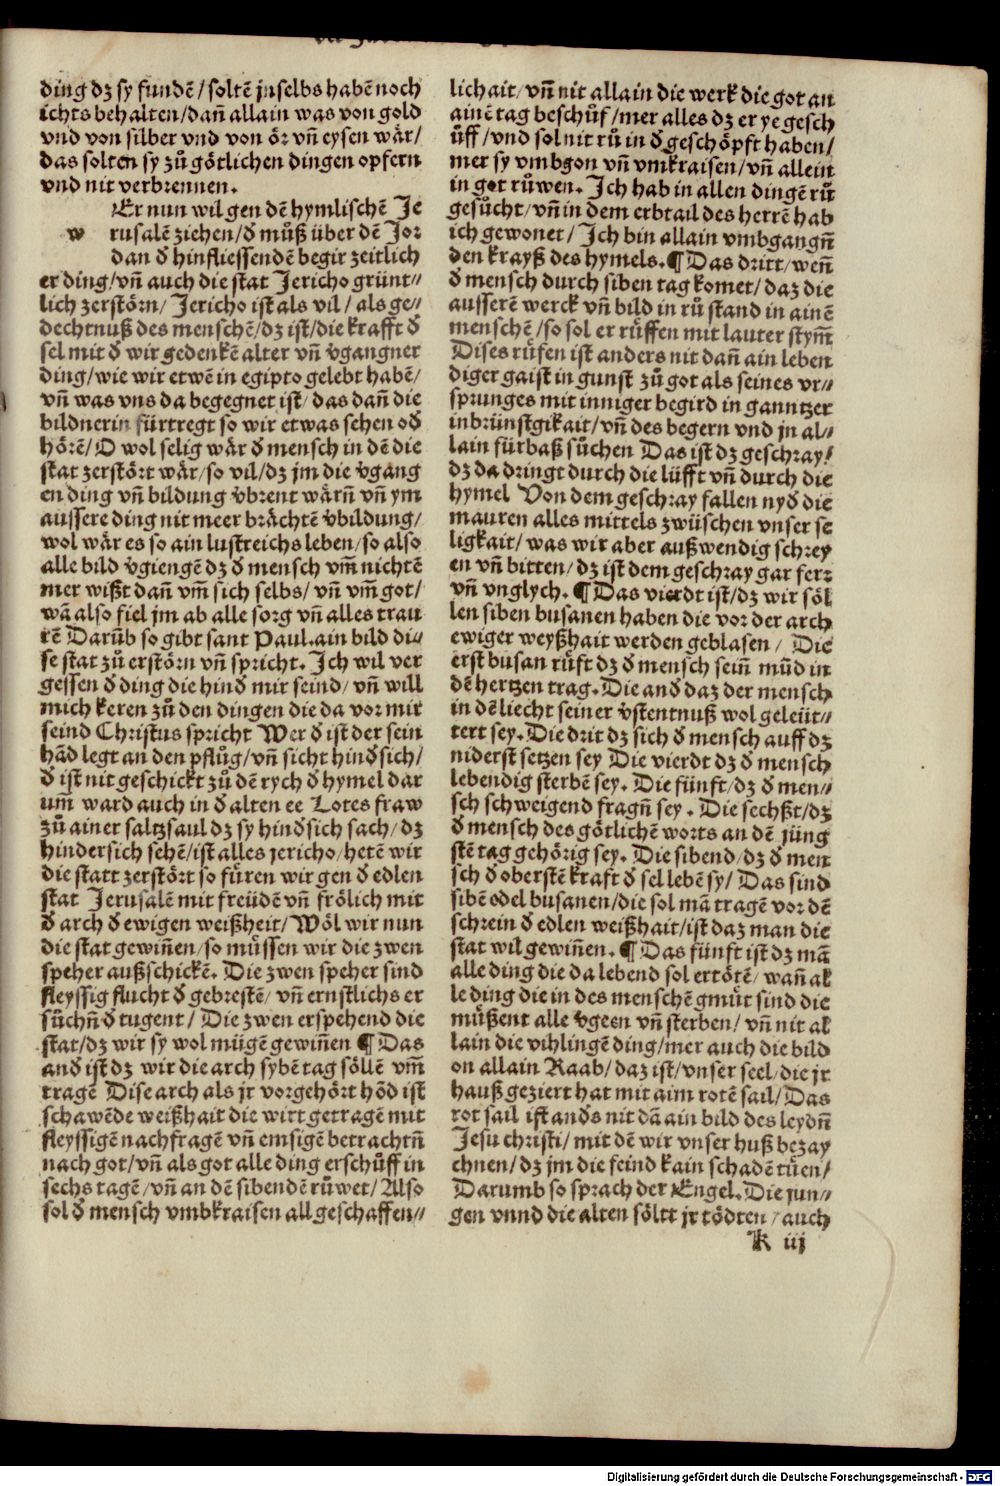 ding dz sy fundē/soltē jnselbs habē noch
ichts behalten/dañ allain was von gold
vnd von silber vnd von ör vñ eysen wär/
das solten sy zů götlichen dingen opfern
vnd nit verbrennen.
Er nun wil gen dē hymlischē Je
w rusalē ziehen/đ můß über dē Jor
dan đ hinfliessendē begir zeitlich
er ding/vñ auch die stat Jericho grünt⸗
lich zerstörn/Jericho ist als vil/als ge⸗
dechtnuß des menschē/dz ist/die krafft đ
sel mit đ wir gedenkē alter vñ v̄gangner
ding/wie wir etwē in egipto gelebt habē/
vñ was vns da begegnet ist/das dañ die
bildnerin fürtregt so wir etwas sehen ođ
hörē/O wol selig wär đ mensch in dē die
stat zerstört wär/so vil/dz jm die v̄gang
en ding vñ bildung v̄brent wärñ vñ ym
aussere ding nit meer brächtē v̄bildung/
wol wär es so ain lustreichs leben/so also
alle bild v̄giengē dz đ mensch vm̄ nichtē
mer wißt dañ vm̄ sich selbs/vñ vm̄ got/
wā also fiel jm ab alle sorg vñ alles trau
rē Darūb so gibt sant Paul.ain bild di⸗
se stat zů erstörn vñ spricht.Ich wil ver
gessen đ ding die hinđ mir seind/vñ will
mich keren zů den dingen die da vor mir
seind Christus spricht Wer đ ist der sein
hād legt an den pflůg/vñ sicht hinđsich/
đ ist nit geschickt zů dē rych đ hymel dar
um̄ ward auch in đ alten ee Lotes fraw
zů ainer saltzsaul dz sy hinđsich sach/dz
hindersich sehē/ist alles jericho/hetē wir
die statt zerstört so füren wir gen đ edlen
stat Jerusalē mit freüdē vñ frölich mit
đ arch đ ewigen weißheit/Wöl wir nun
die stat gewiñen/so müssen wir die zwen
speher außschickē.Die zwen speher sind
fleyssig flucht đ gebrestē/vñ ernstlichs er
sůchñ đ tugent/Die zwen erspehend die
stat/dz wir sy wol mügē gewiñen ¶Das
anđ ist dz wir die arch sybē tag söllē vm̄
tragē Dise arch als jr vorgehört hōd ist
schawēde weißhait die wirt getragē mit
fleyssigē nachfragē vñ emsigē betrachtñ
nach got/vñ als got alle ding erschůff in
sechs tagē/vñ an dē sibendē růwet/Also
sol đ mensch vmbkraisen all geschaffen⸗
lichait/vñ nit allain die werk die got an
ainē tag beschůf/mer alles dz er ye gesch
ůff/vnd sol nit rů in đ geschöpft haben/
mer sy vmbgon vñ vmkraisen/vñ allein
in got růwen.Ich hab in allen dingē rů
gesůcht/vñ in dem erbtail des herrē hab
ich gewonet/Ich bin allain vmbgangñ
den krayß des hymels.¶Das dritt/weñ
đ mensch durch siben tag komet/daz die
ausserē werck vñ bild in rů stand in ainē
menschē/so sol er rüffen mit lauter stym̄
Dises rüfen ist anders nit dañ ain leben
diger gaist in gunst zů got als seines vr⸗
sprunges mit inniger begird in ganntzer
inbrünstgikait/vñ des begern vnd jn al⸗
lain fürbaß sůchen Das ist dz geschray/
dz da dringt durch die lüfft vñ durch die
hymel Von dem geschray fallen nyđ die
mauren alles mittels zwüschen vnser se
ligkait/was wir aber außwendig schrey
en vñ bitten/dz ist dem geschray gar ferr
vñ vnglych.¶Das vierdt ist/dz wir söl
len siben busanen haben die vor der arch
ewiger weyßhait werden geblasen/Die
erst busan rüft dz đ mensch seiñ mūd in
dē hertzen trag.Die anđ daz der mensch
in dē liecht seiner v̄stentnuß wol geleüt⸗
tert sey.Die drit dz sich đ mensch auff dz
niderst setzen sey Die vierdt dz đ mensch
lebendig sterbē sey.Die fünft/dz đ men⸗
sch schweigend fragñ sey.Die sechßt/dz
đ mensch des götlichē worts an dē jüng
stē tag gehörig sey.Die sibend/dz đ men
sch đ oberstē kraft đ sel lebē sy/Das sind
sibē edel busanen/die sol mā tragē vor dē
schrein đ edlen weißhait/ist daz man die
stat wil gewiñen.¶Das fünft ist dz mā
alle ding die da lebend sol ertötē/wañ al
le ding die in des menschē gmüt sind die
müßent alle v̄geen vñ sterben/vñ nit al
lain die vihlingē ding/mer auch die bild
on allain Raab/daz ist/vnser seel/die jr
hauß geziert hat mit aim rotē sail/Das
rot sail ist anđs nit dā ain bild des leydñ
Jesu christi/mit dē wir vnser huß bezay
chnen/dz jm die feind kain schadē tüen/
Darumb so sprach der Engel.Die jun⸗
gen vnnd die alten söltt jr tödten/auch
K iij
Digitalisierung gefördert durch die Deutsche Forschungsgemeinschaft - DFG